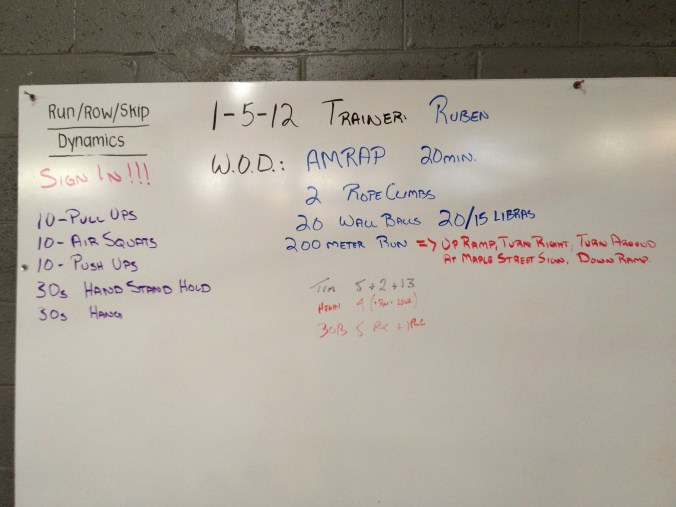 Run/Row/Skip
Dynamics
SIGN IN!!!
10-PULL UPS
10-AIR SQUATS
10-PUSH UPS
30s HAND STAND HOLD
30s HANG
1-5-12 TRAINER: RUBEN
W.O.D.: AMRAP 20MIN.
2 ROPE CLIMBS
20 WALL BALLS 20/15 LIBRAS
200 METER RUN => UP RAMP, TURN RIGHT, TURN AROUND
AT MAPLE STREET SIGN, DOWN RAMP.
5+2+13